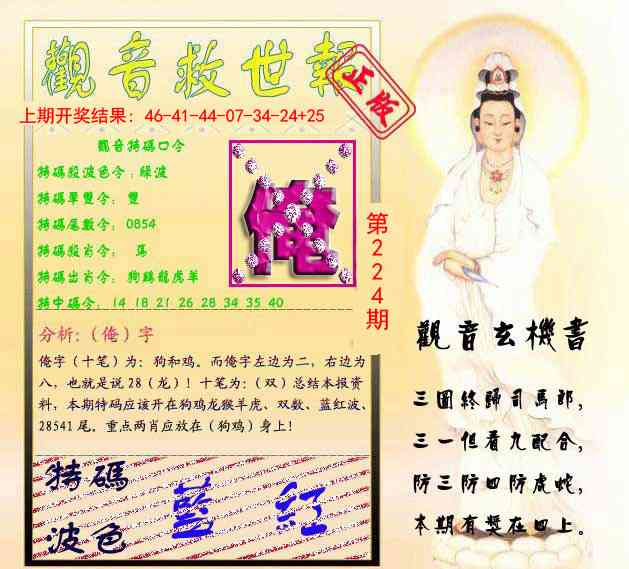 觀音救世報
正版
上期开奖结果：46-41-44-07-34-24+25
觀音特碼口令
特碼殺波色令：綠波
特碼單雙令： 雙
特碼尾數令： 0854
特碼殺肖令： 馬
特碼出肖令： 狗鷄龍虎羊
特中碼令： 14 18 21 26 28 34 35 40
俺
第224期
分析：（俺）字
俺字（十笔）为：狗和鸡。而俺字左边为二，右边为
八，也就是说28（龙）！十笔为：（双）总结本报资
料，本期特码应该开在狗鸡龙猴羊虎、双数、蓝红波、
28541尾。重点两肖应放在（狗鸡）身上！
特碼
波色
藍 紅
觀音玄機書
三國終歸司馬郎，
三一但看九配合，
防三防四防虎蛇，
本期有獎在四上。